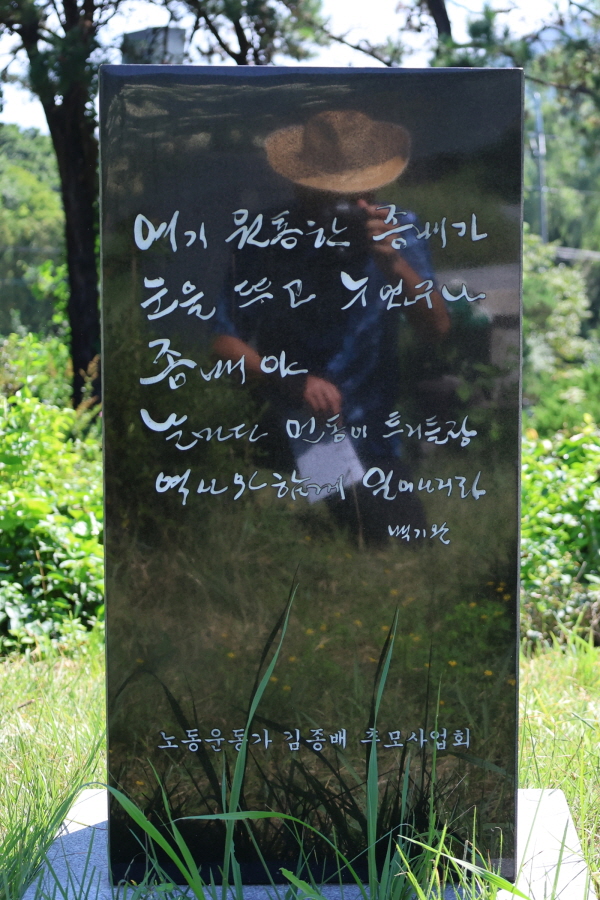 여기 원통한 종배가
눈을 뜨고 누었구나
종배야
날마다 먼동이 트거들랑
역사와 함께 일어나라
백기완
노동운동가 김종배 추모사업회